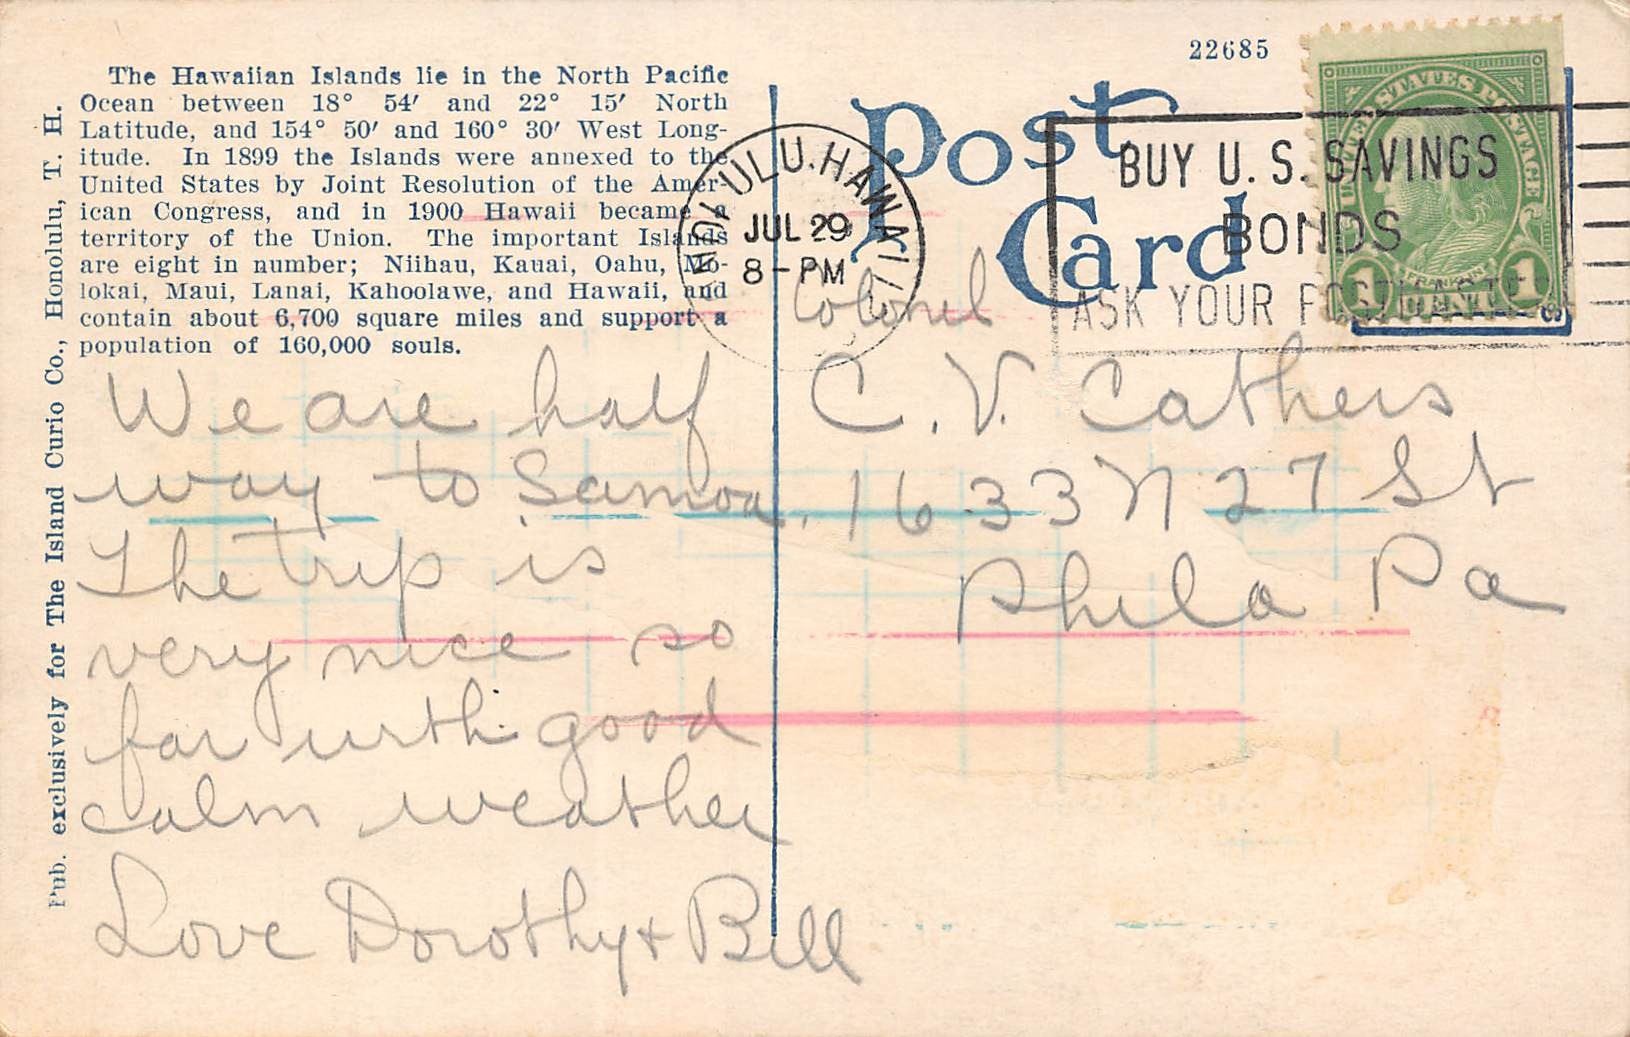 22685
The Hawaiian Islands lie in the North Pacific
Ocean between 18° 54′ and 22° 15′ North
Latitude, and 154° 50′ and 160° 30′ West Long-
itude. In 1899 the Islands were annexed to the
United States by Joint Resolution of the Amer-
ican Congress, and in 1900 Hawaii became a
territory of the Union. The important Islands
are eight in number; Niihau, Kauai, Oahu, Mo-
lokai, Maui, Lanai, Kahoolawe, and Hawaii, and
contain about 6,700 square miles and support a
population of 160,000 souls.
Pub. exclusively for The Island Curio Co., Honolulu, T. H.
Post
Card
HONOLULU, HAWAII
JUL 29
8-PM
BUY U. S. SAVINGS
BONDS
ASK YOUR POSTMASTER
UNITED STATES POSTAGE
FRANKLIN
1 CENT 1
We are half
way to Samoa.
The trip is
very nice so
far with good
calm weather
Love Dorothy & Bill
Colonel
C. V. Cathers
1633 N 27 St
Phila Pa